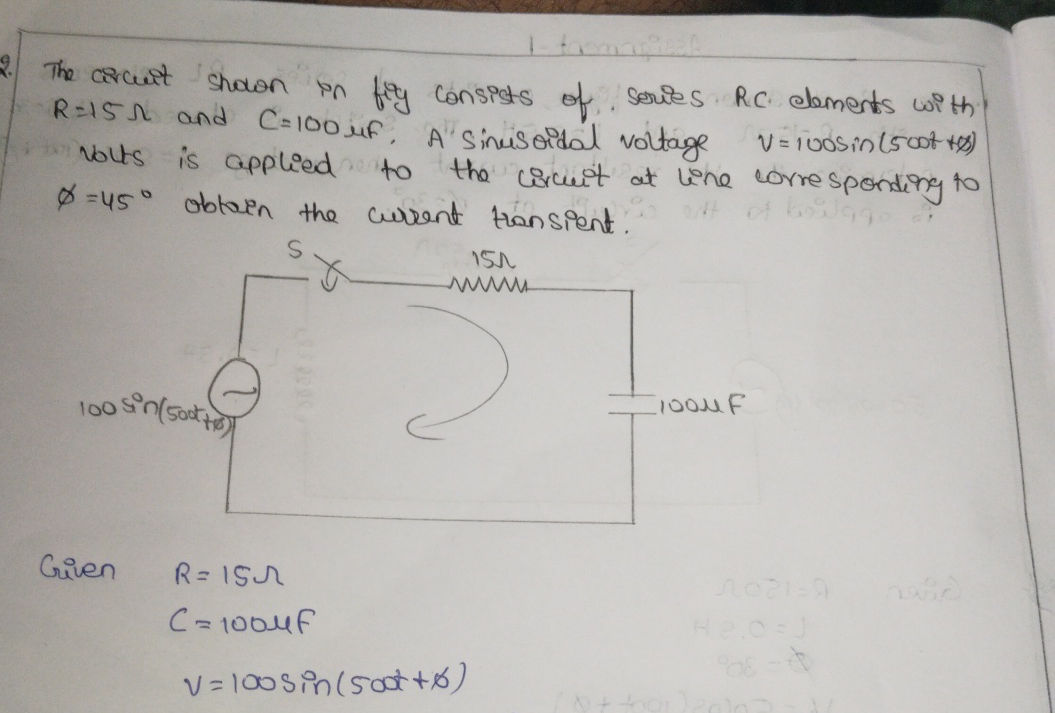 2. The circuit shown in fig consists of series RC elements with
R=15Ω and C=100μf. A sinusoidal voltage v=100sin(500t+φ)
volts is applied to the circuit at time corresponding to
φ=45° obtain the current transient.
S
15Ω
100sin(500t+φ)
100μF
Given R=15Ω
C=100μF
V=100sin(500t+φ)